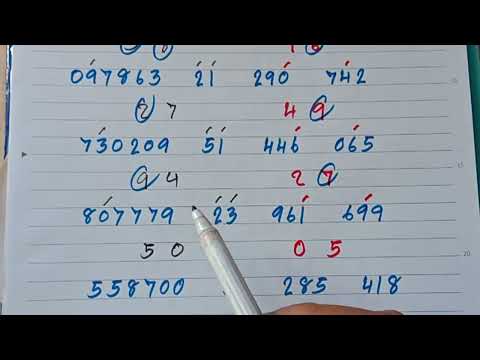 097863 21 290 742
27 49
730209 51 446 065
94 27
807779 23 961 699
50 05
558700 285 418
20